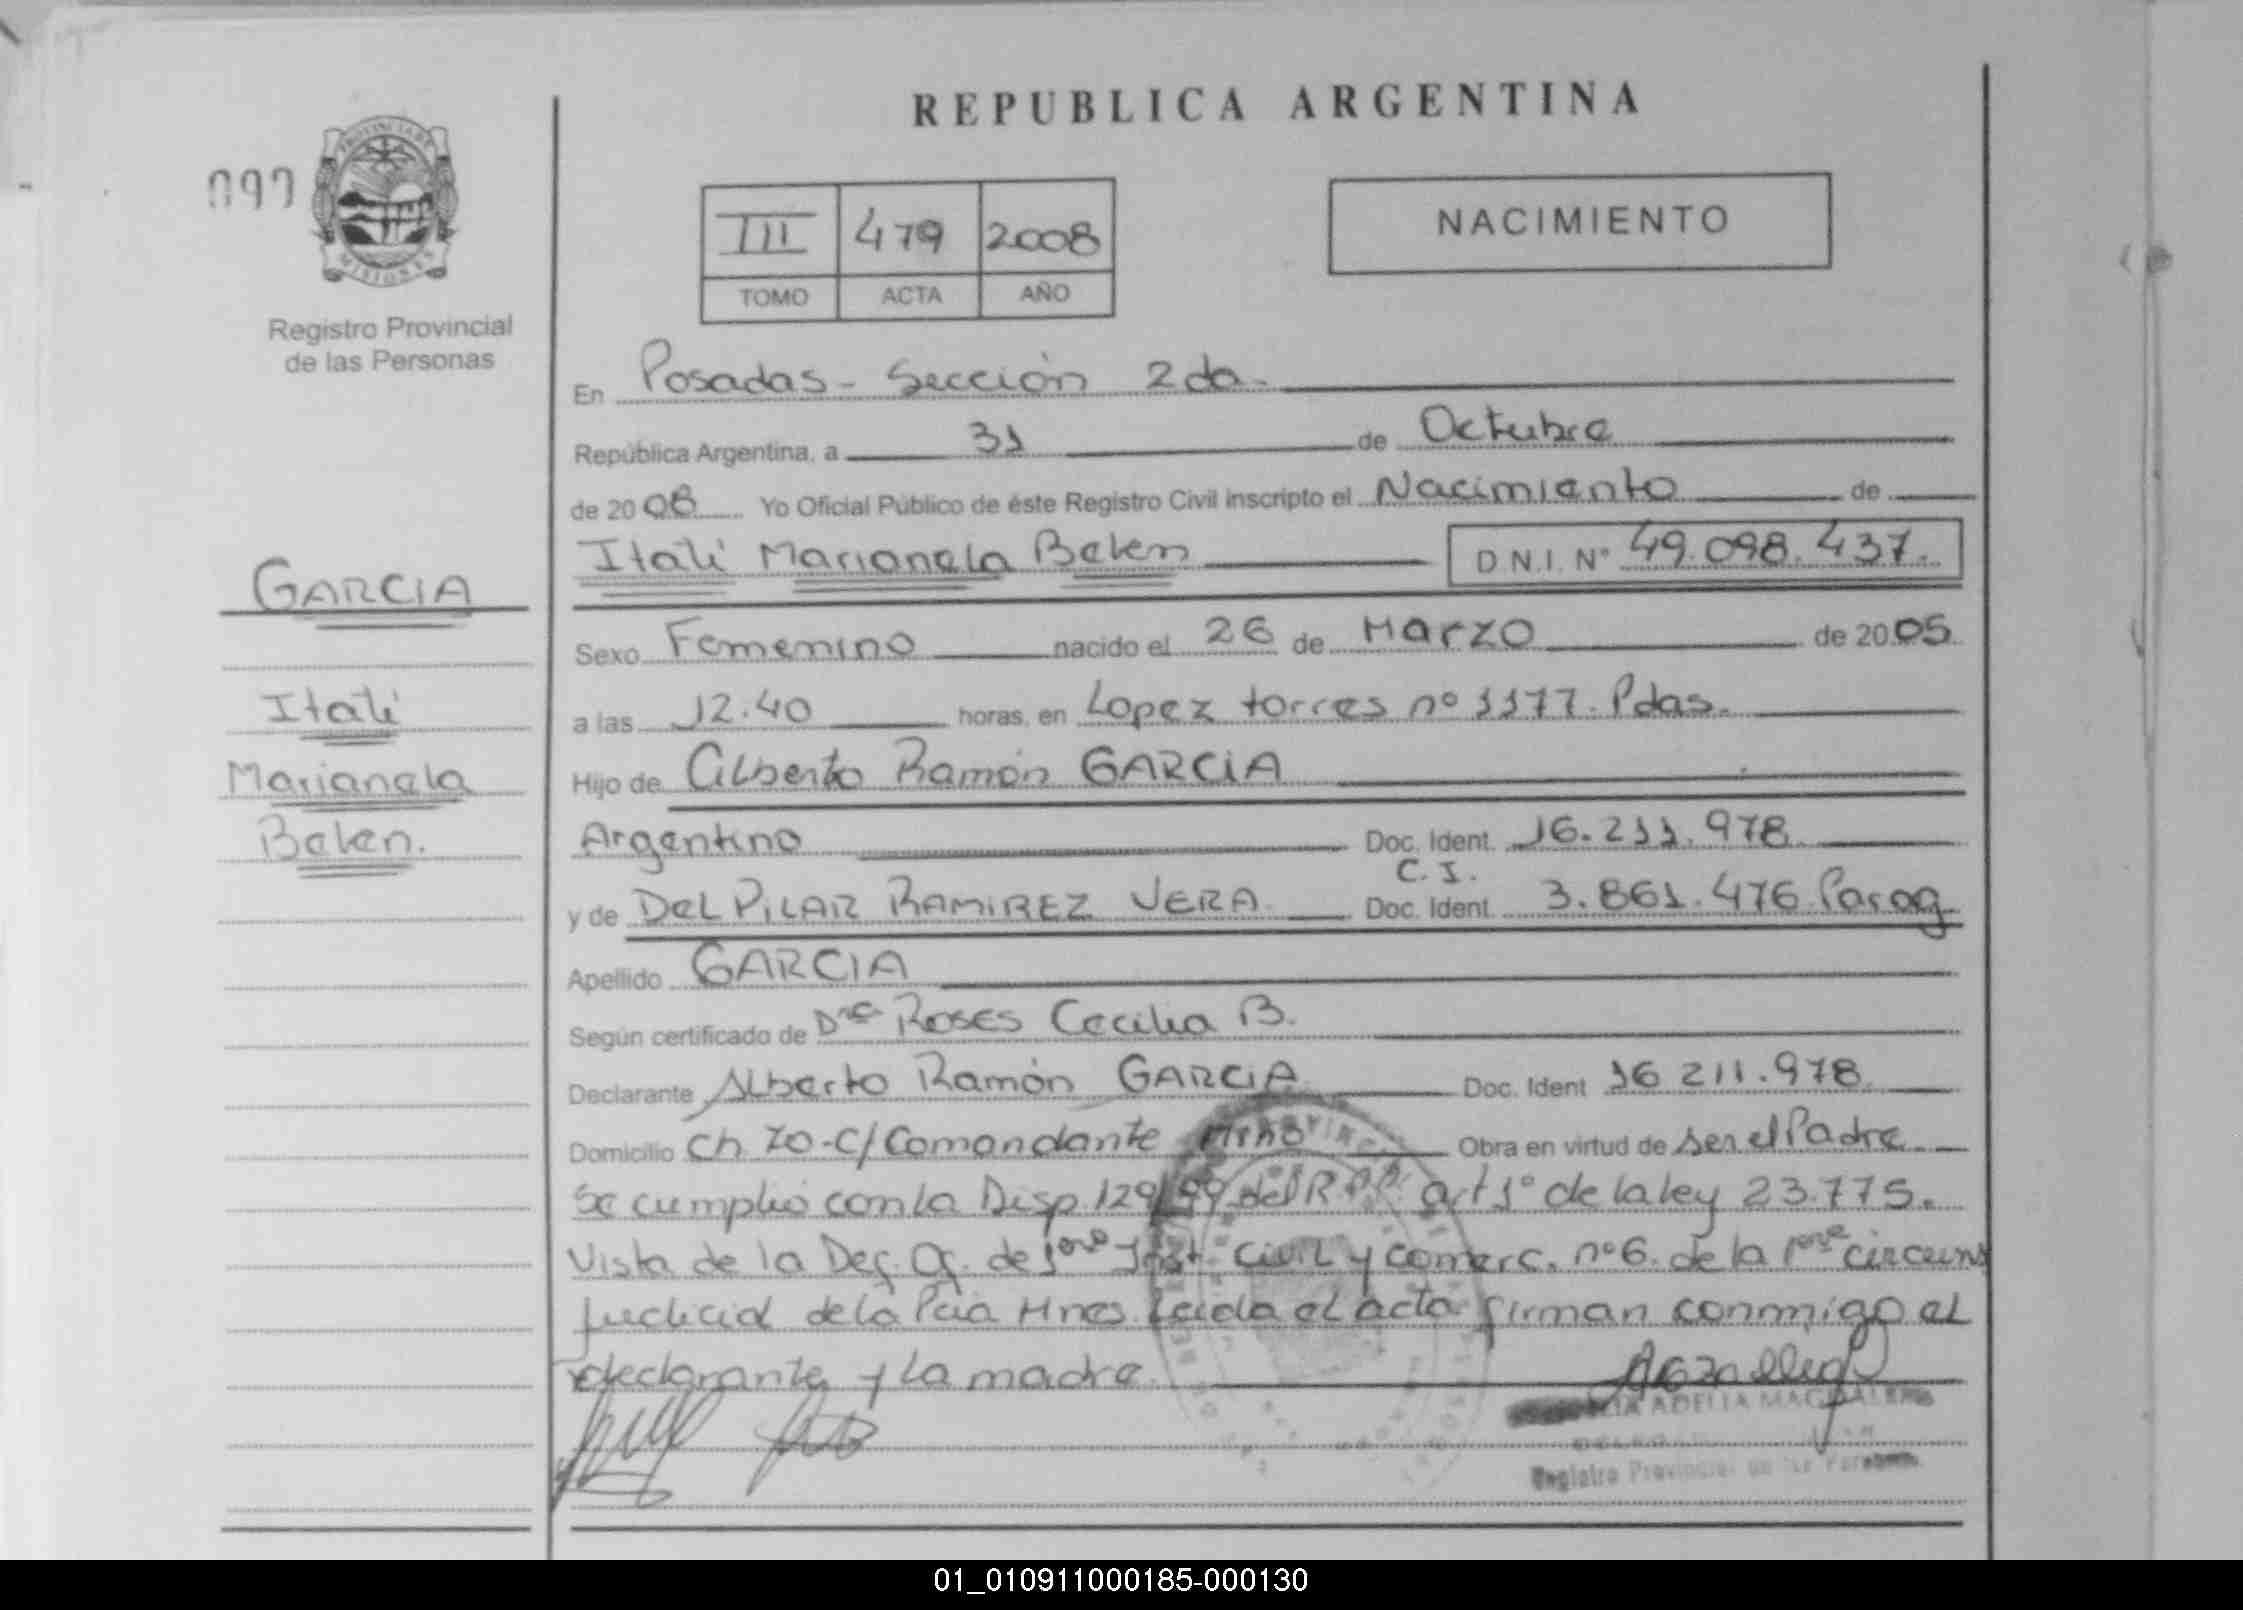 REPUBLICA ARGENTINA
097
PROVINCIA DE
MISIONES
Registro Provincial
de las Personas
III 479 2008
TOMO ACTA AÑO
NACIMIENTO
En Posadas - Sección 2da.
República Argentina, a 31 de Octubre
de 2008 Yo Oficial Público de éste Registro Civil inscripto el Nacimiento de
Itatí Marianela Belen D.N.I. Nº 49.098.437.
GARCIA
Itatí
Marianela
Belen.
Sexo Femenino nacido el 26 de Marzo de 2005
a las 12.40 horas, en Lopez torres nº 1177. Pdas.
Hijo de Alberto Ramón GARCIA
Argentino Doc. Ident. 16.211.978
C.I.
y de DEL PILAR RAMIREZ VERA Doc. Ident. 3.861.476 Parag
Apellido GARCIA
Según certificado de Dra ROSES Cecilia B.
Declarante Alberto Ramón GARCIA Doc. Ident 16 211.978
Domicilio Ch. 70-C/Comandante Miño Obra en virtud de ser el Padre
Se cumplió con la Disp. 129/99 del R.P.P. art 1º de la ley 23.775.
Vista de la Def. Of. de 1era Inst. Civil y Comerc. nº 6. de la 1era circuns
judicial de la Pcia Mnes. Leida el acta firman conmigo el
declarante y la madre.
ADELIA MAGDALENA
Registro Provincial de las Personas
01_010911000185-000130